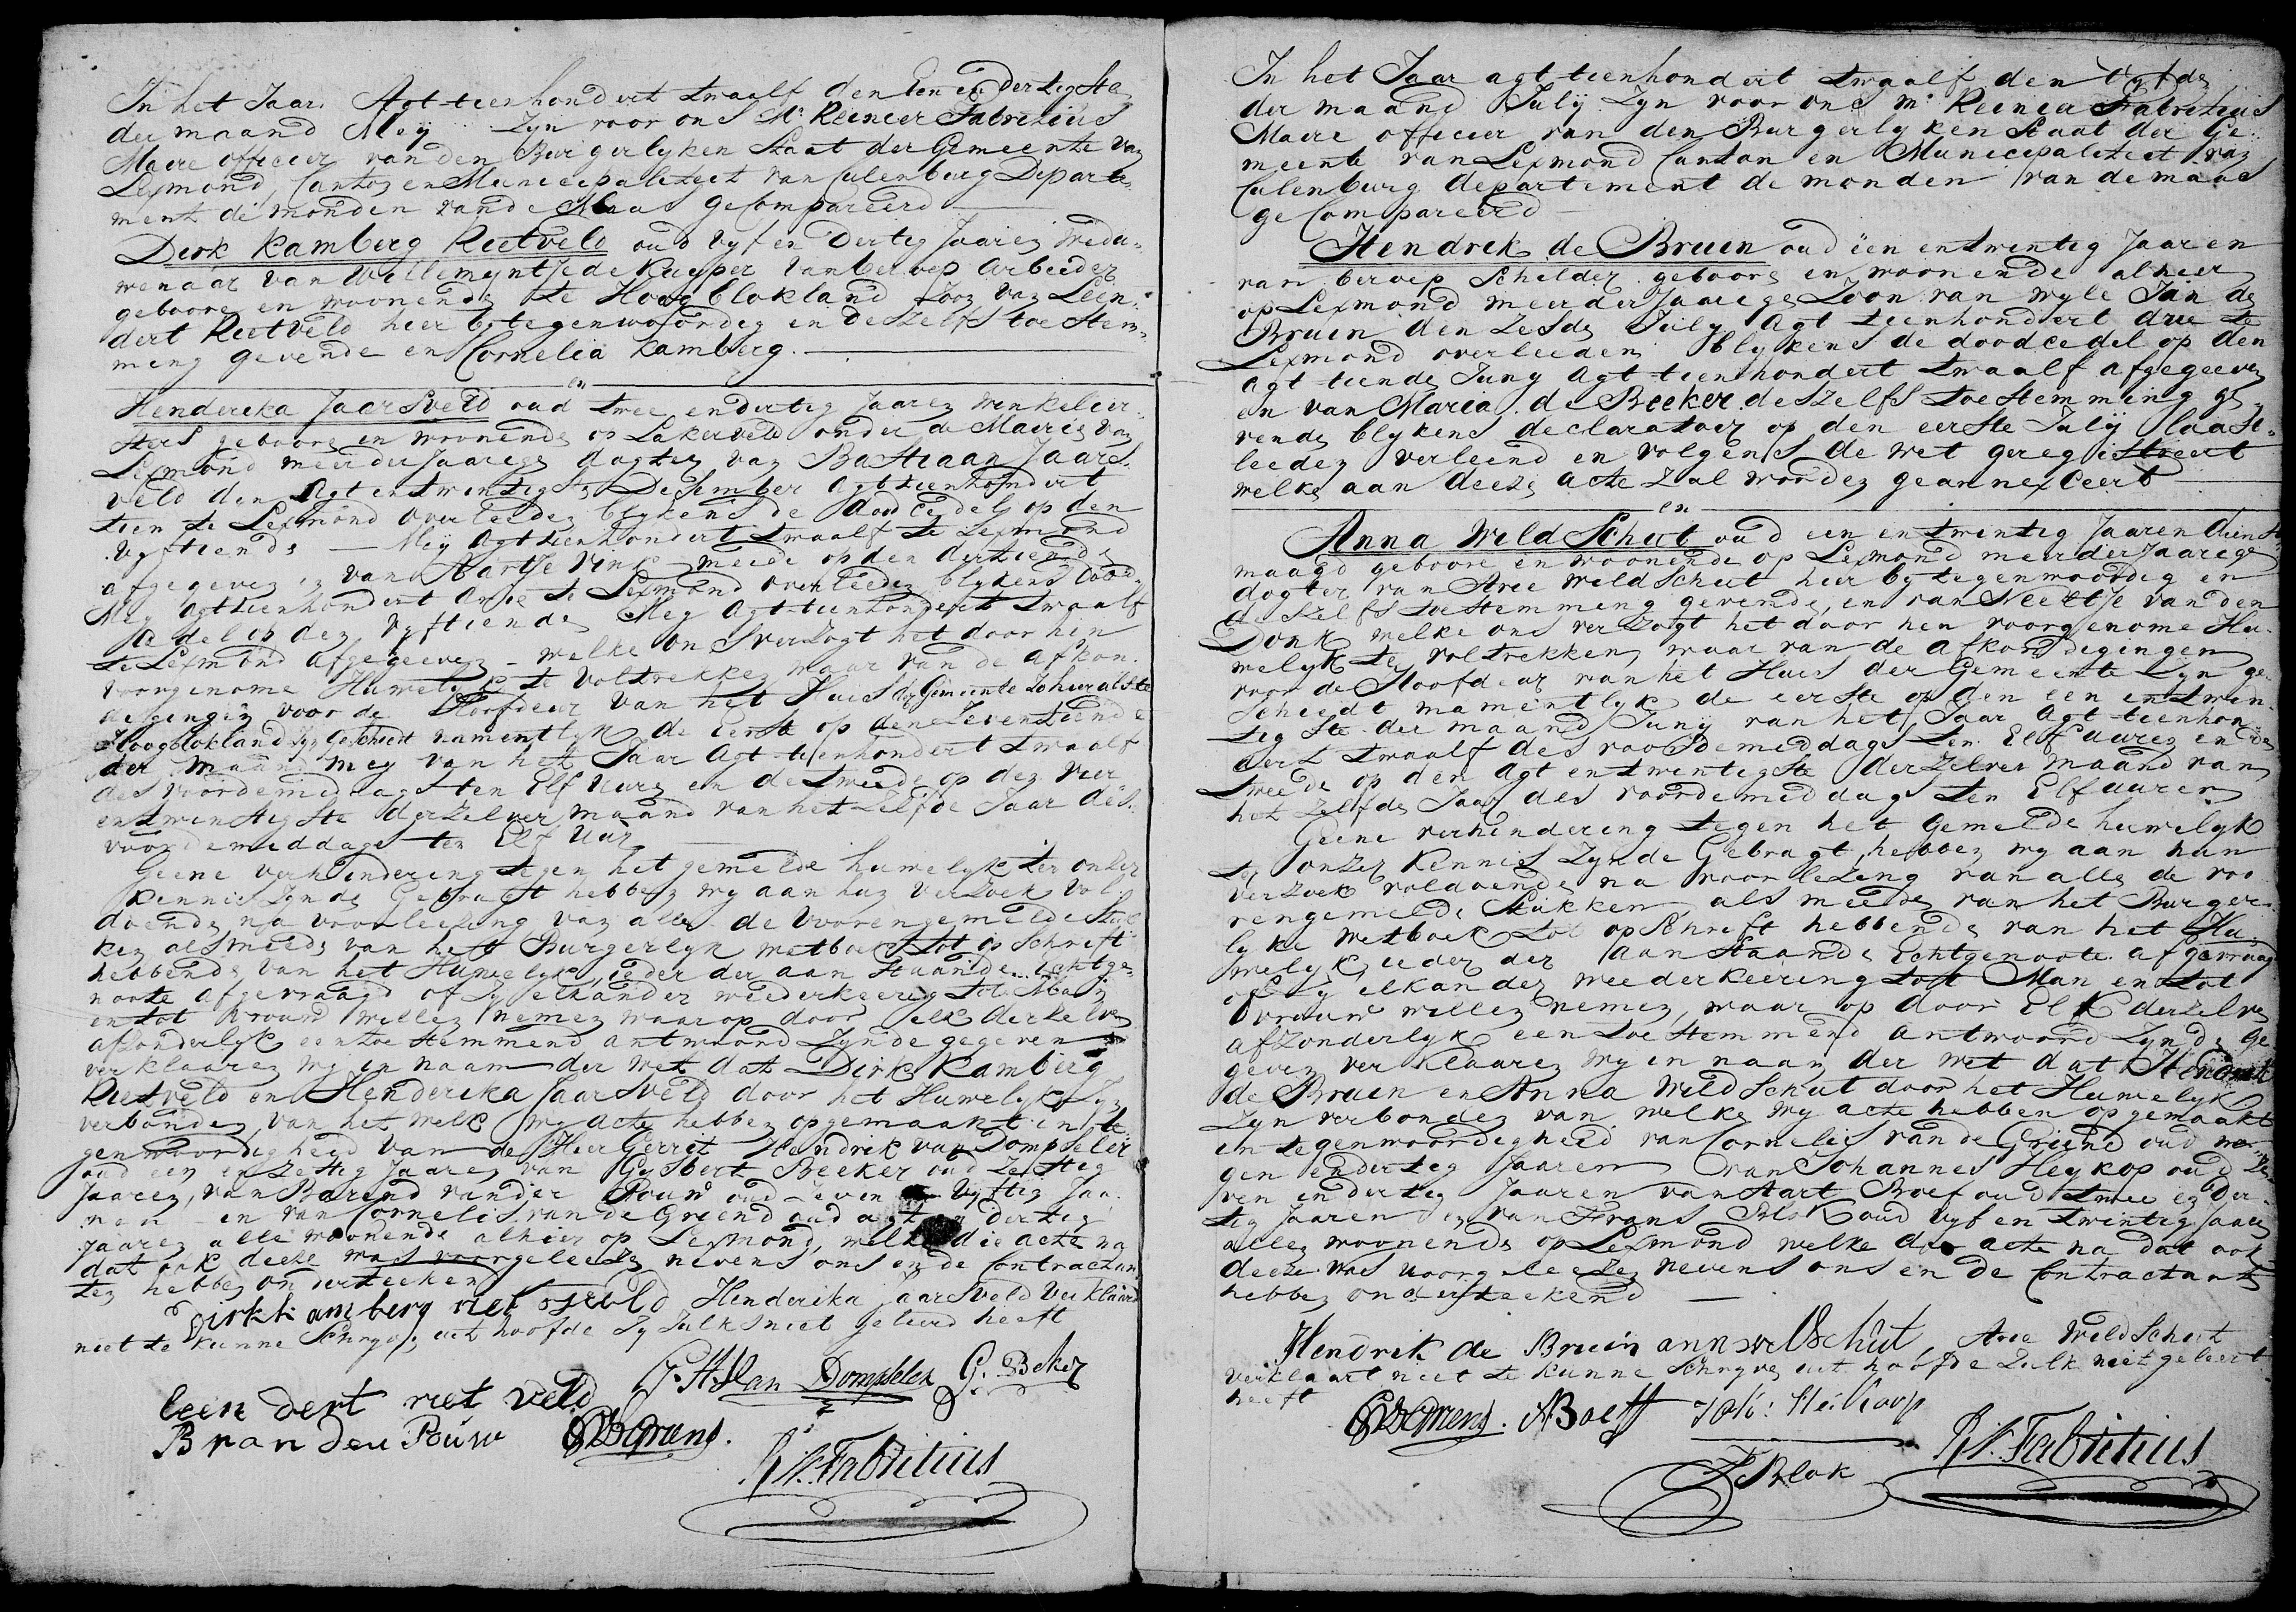 In het Jaar Agt-teenhondert twaalf den Een en Dertigste
der maand Meij Zyn voor ons Mr. Reinier Fabritius
Maire officier van den Burgerlyken Staat der Gemeente van
Lexmond, Canton en Municipaliteit van Culenburg Departe-
ment de monden van de Maas Gecompareerd
Dirk Kamberg Rietveld oud Vyf en Dertig Jaaren wedu-
wenaar van Willemyntje de Kuyper van beroep Arbeider
geboore en woonende te Hoogblokland Zoon van Leen-
dert Rietveld hier by tegenwoordig en deszelfs toe Stem-
ming gevende en Cornelia Kamberg.
en
Henderika Jaarsveld oud twee en dertig Jaaren winkelier-
sters geboore en woonende op Lakerveld onder de Mairie van
Lexmond meerderjaarige dogter van Bastiaan Jaars-
veld den Agt en twintigste December agtteenhondert
tien te Lexmond overleeden blykens de doodceedel op den
vyftiende Meij Agtteenhondert twaalf te Lexmond
afgegeven en van Aartje Vink meede op den dertiende
Mey Agtteenhondert drie te Lexmond overleeden blykens dood-
cedel op den vyftiende Mey Agt-teenhondert twaalf
te Lexmond afgegeeven - welke ons verzogt het door hen
voorgenome Huwelyk te voltrekken waar van de afkon-
digingen voor de Hoofdeur van het Huis der Gemeente zo hier als te
Hoogblokland zyn Geschiedt namentlyk de Eerste op den Zeventiende
der maand mey van het Jaar Agt-teenhondert twaalf
des voordemiddags ten Elf Uure en de tweede op den vier
en twintigste derzelver maand van het zelfde Jaar des
voordemiddags ten Elf Uur
Geene verhindering tegen het gemelde huwelyk ter onzer
kennis Zynde Gebragt hebben wy aan hun verzoek vol-
doende na voorleesing van alle de voorengemelde Stuk-
ken als meede van het Burgerlyk wetboek tot op Schrift
hebbende van het Huwelyk, ieder der aan Staande Echtge-
noote afgevraagd of Zy elkander weederkeerig tot Man
en tot vrouw willen nemen waarop door elk derzelver
afzonderlyk een toe Stemmend antwoord Zynde gegeven
verklaaren wy in naam der wet dat Dirk Kamberg
Rietveld en Henderika Jaarsveld door het Huwelyk Zyn
verbonden, van het welk wy acte hebben opgemaakt in te-
genwoordigheid van de Heer Gerrit Hendrik van Dompseler
oud een en Zestig Jaaren van Gysbert Beeker oud Zestig
Jaaren, van Barend van der Pouw oud Zeven en vyftig Jaa-
ren en van Cornelis van de Griend oud agt en dertig
Jaaren alle woonende alhier op Lexmond, welke die acte na
dat ook deeze was voorgeleezen nevens ons en de Contractan-
ten hebben onderteekend
Dirk kamberg riet veld Henderika Jaarsveld verklaard
niet te kunne Schryve, uit hoofde Zy Zulks niet geleerd heeft
leen dert riet veld G. H. Van Dompseler G. Beker
B van deu Pouw CVDGriend.
R: Fabritius
In het Jaar agt-teenhondert twaalf den
der maand July Zyn voor ons Mr. Reinier Fabritius
Maire officier van den Burgerlyken Staat der Ge-
meente van Lexmond Canton en Municipaliteit van
Culenburg departement de monden van de maas
gecompareerd
Hendrik de Bruin oud een en twintig Jaaren
van beroep Schilder geboore en woonende alhier
op Lexmond meerderjaarige Zoon van wyle Jan de
Bruin den Zesde July Agt-teenhondert drie te
Lexmond overleeden blykens de doodcedel op den
agt-teende Juny Agt-teenhondert twaalf afgegeeven
en van Maria de Beeker deszelfs toestemming ge-
vende blykens declaratoir op den eerste July laast-
leeden verleend en volgens de wet geregistreert
welke aan deeze acte zal worden geannexeert
en
Anna Weld Schut oud een en twintig Jaaren dienst-
maagd geboore en woonende op Lexmond meerderjaarige
dogter van Arie Weld Schut hier by tegenwoordig en
deszelfs toe Stemming gevende, en van Neeltje van den
Donk welke ons verzogt het door hen voorgenome Hu-
welyk te voltrekken, waar van de afkondigingen
voor de Hoofdeur van het Huis der Gemeente Zyn ge-
schiedt namentlyk de eerste op den een en twin-
tigste der maand Juny van het Jaar Agt-teenhon-
dert twaalf des voordemiddags ten Elf uuren en de
tweede op den Agt en twintigste derzelver maand van
het zelfde Jaar des voordemiddags ten Elf uuren
Geene verhindering tegen het Gemelde huwelyk
ter onzer Kennis Zynde Gebragt, hebben wy aan hun
verzoek voldoende na voorlezing van alle de voo-
rengemelde Stukken, als meede van het Burger-
lyke wetboek tot opschrift hebbende van het Hu-
welyk, ieder der aan Staande Echtgenoote afgevraagd
of Zy elkander weederkeering tot Man en tot
vrouw willen nemen, waar op door Elk derzelve
afzonderlyk een toe Stemmend antwoord Zynde ge
geven verklaaren wy in naam der wet dat Hendrik
de Bruin en Anna Weld Schut door het Huwelyk
Zyn verbonden van welke wy acte hebben opgemaakt
in tegenwoordigheid van Cornelis van de Griend oud ne-
gen en dertig Jaaren van Johannes Heykop oud ze-
ven en dertig Jaaren van Aart Boef oud twee en der-
tig Jaaren en van Frans Blok oud vyf en twintig Jaaren
alle woonende op Lexmond welke die acte na dat ook
deeze was voorgeleezen nevens ons en de Contractante
hebben onderteekend
Hendrik de Bruin anna welschut Arie Weld Schut
verklaart niet te kunne Schryve uit hoofde Zulk niet geleert
heeft CVDGriend. ABoeff Joh: Heikoop
F Blok R: Fabritius